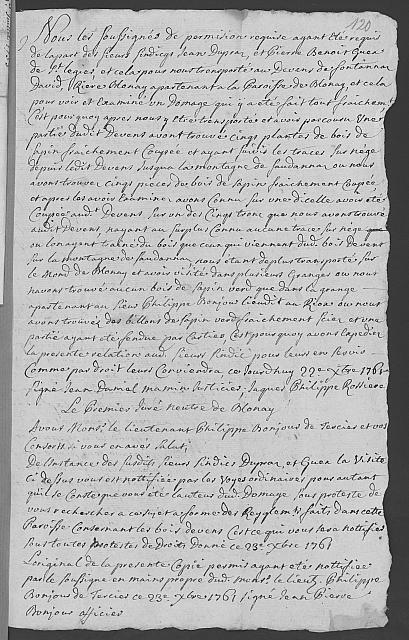 120
Nous les soussignés de permision requise ayant été requis
de la part des sieurs sindicqs Jean Dupraz, et Pierre Benoit Guex
de St legier, et cela pour nous transporté au Devens de fontannaz
David, Riere Blonay apartenant a la Paroisse de Blonay, et cela
pour voir et Examiné un Domage qui y a eté fait tout fraichem
C'est pourquoy apres nous y Etre transportés et avoir parcouru Une
partie dudit Devens avont trouvé cinqs plantes de bois de
sapin fraichement Coupée et ayant suivis les traces sur nege
depuis ledit Devens Jusque la montagne de saudannaz ou nous
avons trouvé cinqs pieces du bois de sapin fraichement Coupée
et apres les avoir Examiné avons Connu sur une dicelle avoir eté
Coupée audt Devens sur un des Cinqs tronc que nous avons trouvé
audit Devens, nayant au surplus Connu aucune trace sur nege
ou lon ayant trainé du bois que ceux qui viennent dud. bois Devens
sur la montagne de saudannaz, nous étant de plus transportés sur
le Mond de Blonay et avoir visité dans plusieurs Granges ou nous
navons trouvé aucun bois de sapin verd que dans la grange
apastenant au sieur Philippe Bonjour lieudit au Rioz ou nous
avons trouvéz des billons de sapin verd fraichement scier et une
partie ayant eté fendue par Cartier, C'est pourquoy avons Expedier
la presente relation aud. sieurs sindic pour leurs en servir
Comme par droit leurs Conviendra ce Jourdhuy 22e xbre 1761
signé Jean Daniel mamin Justicier, Jaques Philippe Rossiere
Le Premier Juré neutre de Blonay
A vous Monsr. le lieutenant Philippe Bonjour de Tercier et vos
Consorts si vous en avés salut;
De l'instance des susdits sieurs sindics Dupraz, et Guex la Visite
Ci desus vous est nottifiée par les Voyes ordinaires pour autant
qu'il se Conste que vous eté lauteur dud. Domage sous proteste de
vous rechercher a ce sujet a forme des Reyglemts faits dans cette
Paroisse Consernant les bois devens C'est ce qui vous sera nottifiée
sous toutes Protestes de Droits Donné ce 23e xbre 1761
l'original de la presente Copié permis ayant eté nottifiée
par le soussigné en mains propre dud. monsr. le lieut. Philippe
Bonjour de Tercier ce 23e xbre 1761 signé Jean Pierre
Bonjour officier